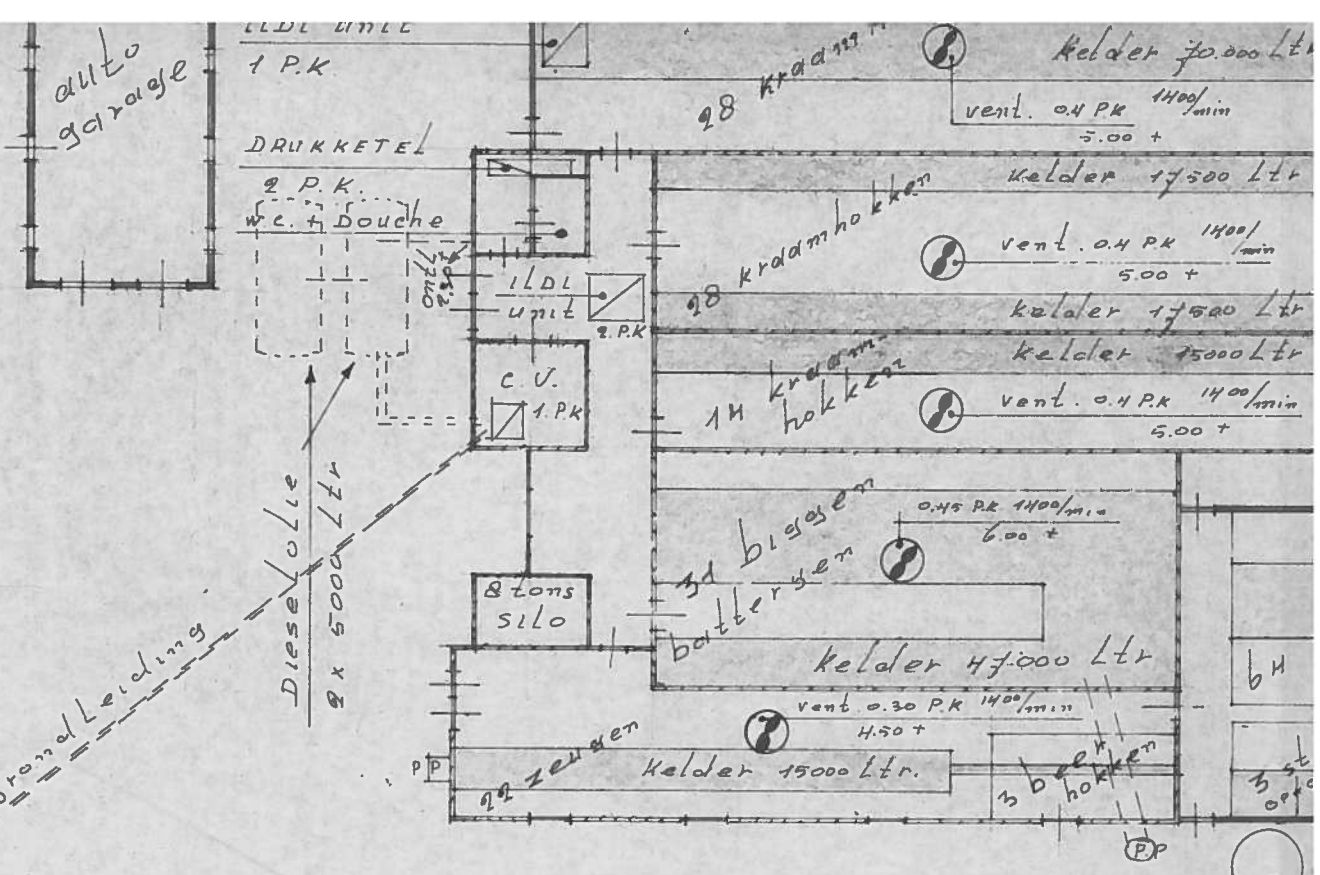 auto
garage
unit
1 P.K.
DRUKKETEL
2 P.K.
w.c. + Douche
unit
2.P.K
C.V.
1.PK
Diesel olie
2 x 5000 Ltr
8 tons
SILO
28 kraam
Kelder 70.000 Lt
vent. 0.4 P.K 1400/min
5.00 +
Kelder 17500 Ltr
28 kraamhokken
vent. 0.4 P.K 1400/min
5.00 +
kelder 17500 Ltr
Kelder 15000 Ltr
14 kraam-
hokken
vent. 0.4 P.K 1400/min
5.00 +
0.45 P.K 1400/min
6.00 +
biggen
batterijen
Kelder 47.000 Ltr
vent 0.30 P.K 1400/min
4.50 +
22 zeugen
Kelder 15000 Ltr.
3 beer
hokken
PP
P.P